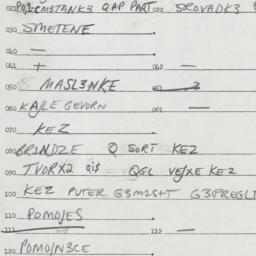 022 POL-CMSTANK3 QAP PART 022 SROVADK3
030 SMETENE
040 —
041 + 042 —
050 MASL3NKE 051 3
060 KAJLE GEVORN 061 —
070 KEZ
080 BRINDZE Q SORT KEZ
090 TVORX2 QIS QGL VEJXE KEZ
100 KEZ PUTER G3M1S+T G3PREGLI
110 POMOJES
111 112 —
120 POMO/N3CE